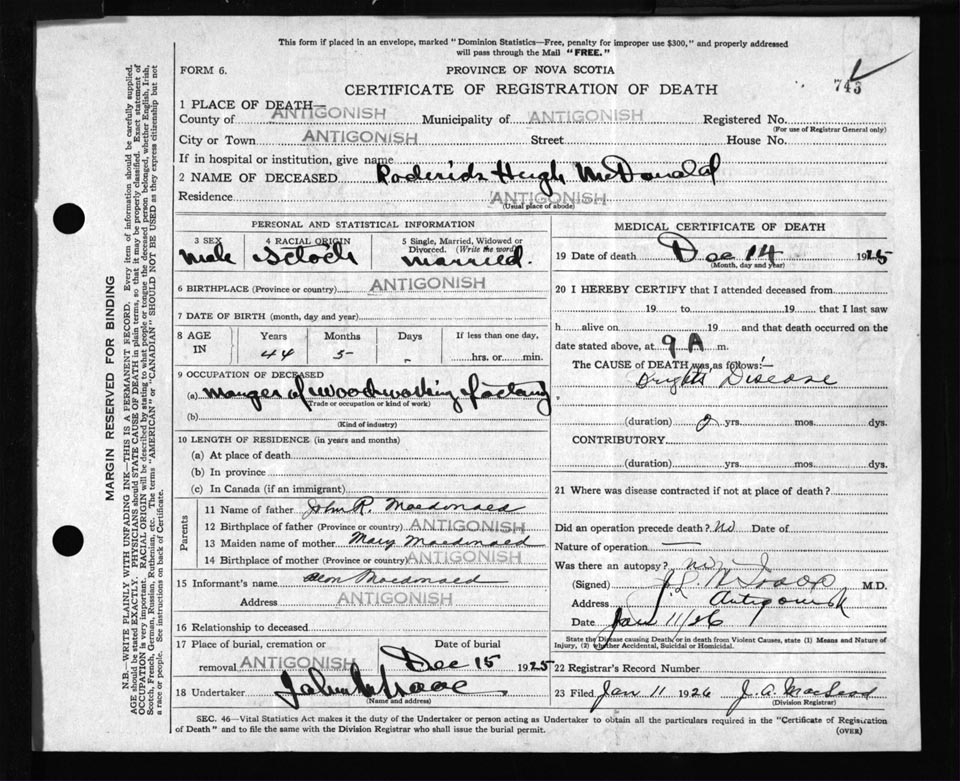 This form if placed in an envelope, marked "Dominion Statistics—Free, penalty for improper use $300," and properly addressed
will pass through the Mail "FREE."
FORM 6.
PROVINCE OF NOVA SCOTIA
743
CERTIFICATE OF REGISTRATION OF DEATH
1 PLACE OF DEATH—
County of ANTIGONISH Municipality of ANTIGONISH Registered No.
(For use of Registrar General only)
City or Town ANTIGONISH Street House No.
If in hospital or institution, give name
2 NAME OF DECEASED Roderick Hugh McDonald
Residence ANTIGONISH
(Usual place of abode)
PERSONAL AND STATISTICAL INFORMATION
3 SEX male
4 RACIAL ORIGIN Scotch
5 Single, Married, Widowed or
Divorced. (Write the word)
married.
6 BIRTHPLACE (Province or country) ANTIGONISH
7 DATE OF BIRTH (month, day and year)
8 AGE IN Years Months Days If less than one day,
44 5 - hrs. or min.
9 OCCUPATION OF DECEASED
(a) manger of woodworking factory
(Trade or occupation or kind of work)
(b)
(Kind of industry)
10 LENGTH OF RESIDENCE (in years and months)
(a) At place of death
(b) In province
(c) In Canada (if an immigrant)
Parents
11 Name of father John R. Macdonald
12 Birthplace of father (Province or country) ANTIGONISH
13 Maiden name of mother Mary Macdonald
14 Birthplace of mother (Province or country) ANTIGONISH
15 Informant's name Macdonald
Address ANTIGONISH
16 Relationship to deceased
17 Place of burial, cremation or Date of burial
removal ANTIGONISH Dec 15 1925
18 Undertaker John
(Name and address)
MEDICAL CERTIFICATE OF DEATH
19 Date of death Dec 14 1925
(Month, day and year)
20 I HEREBY CERTIFY that I attended deceased from
19 to 19 that I last saw
h alive on 19 and that death occurred on
date stated above, at 9 A m.
The CAUSE of DEATH was as follows:—
Brights Disease
(duration) 2 yrs. mos. dys.
CONTRIBUTORY
(duration) yrs. mos. dys.
21 Where was disease contracted if not at place of death?
Did an operation precede death? No Date of
Nature of operation —
Was there an autopsy? No
(Signed) J. L. M.D.
Address Antigonish
Date Jan 11/26
State the Disease causing Death, or in death from Violent Causes, state (1) Means and Nature of
Injury, (2) whether Accidental, Suicidal or Homicidal.
22 Registrar's Record Number
23 Filed Jan 11 1926 J. A. MacLeod
(Division Registrar)
SEC. 46—Vital Statistics Act makes it the duty of the Undertaker or person acting as Undertaker to obtain all the particulars required in the "Certificate of Registration
of Death" and to file the same with the Division Registrar who shall issue the burial permit.
(OVER)
MARGIN RESERVED FOR BINDING
N.B.—WRITE PLAINLY WITH UNFADING INK—THIS IS A PERMANENT RECORD. Every item of information should be carefully supplied.
AGE should be stated EXACTLY. PHYSICIANS should STATE CAUSE OF DEATH in plain terms, so that it may be properly classified. Exact statement of
OCCUPATION is very important. RACIAL ORIGIN will be described by stating to what people or tongue the deceased person belonged, whether English, Irish,
Scotch, French, German, Russian, Ruthenian, etc. The terms "AMERICAN" or "CANADIAN" SHOULD NOT BE USED as they express citizenship but not
a race or people. See instructions on back of Certificate.